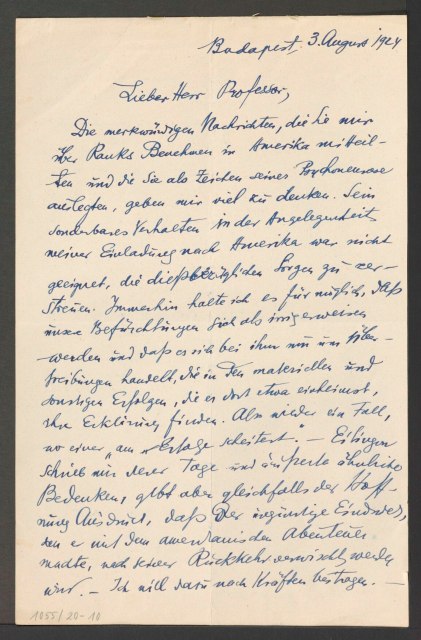 Budapest, 3. August 1924
Lieber Herr Professor,
Die merkwürdigen Nachrichten, die Sie mir
über Ranks Benehmen in Amerika mitteil-
ten und die Sie als Zeichen seines Psychoneurose
auslegten, geben mir viel zu denken. Sein
sonderbares Verhalten in der Angelegenheit
meiner Einladung nach Amerika war nicht
geeignet, die dießbezüglichen Sorgen zu zer-
streuen. Immerhin halte ich es für möglich, daß
unsere Befürchtungen sich als irrig erweisen
werden und daß es sich bei ihm nur um Über-
treibungen handelt, die in den materiellen und
sonstigen Erfolgen, die er dort etwa einheimst,
ihre Erklärung finden. Also wieder ein Fall,
wo einer „am Erfolge scheitert." – Eitingon
schrieb mir dieser Tage und äußerte ähnliche
Bedenken, gibt aber gleichfalls der Hoff-
nung Ausdruck, daß der ungünstige Eindruck,
den er mit dem amerikanischen Abenteuer
machte, nach seiner Rückkehr verwischt werden
wird. – Ich will dazu nach Kräften beitragen. –
1055/20-10